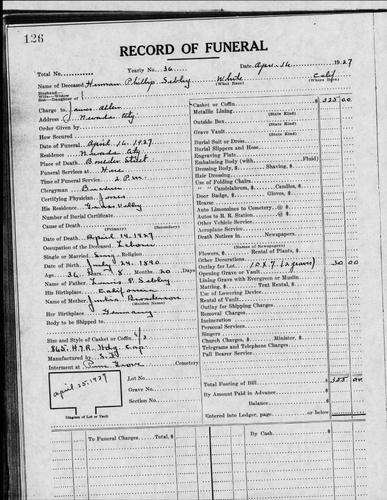 126
RECORD OF FUNERAL
Total No. Yearly No. 36 Date Apr. 16 1927
Name of Deceased Herman Phillip Sebley White Calif
(What Race) (Where Born)
Husband—
Wife—Widow
Son—Daughter of
Charge to James Allen
Address Nevada City
Order Given by
How Secured
Date of Funeral April 16, 1927
Residence Nevada City
Place of Death Boulder Street
Funeral Services at Home
Time of Funeral Service 2 P.M.
Clergyman
Certifying Physician Jones
His Residence Grass Valley
Number of Burial Certificate
Cause of Death
(Primary) (Secondary)
Date of Death April 14 1927
Occupation of the Deceased Laborer
Single or Married Sing Religion
Date of Birth July 24, 1890
Age 36 Years 8 Months 20 Days
Name of Father P. Sebley
His Birthplace California
Name of Mother
(Maiden Name)
Her Birthplace Germany
Body to be Shipped to
Size and Style of Casket or Coffin
Manufactured by
Interment at Pine Grove Cemetery
April 25, 1927
Lot No.
Grave No.
Section No.
Diagram of Lot or Vault
Casket or Coffin $ 325 00
Metallic Lining
(State Kind)
Outside Box
(State Kind)
Grave Vault
(State Kind)
Burial Suit or Dress
Burial Slippers and Hose
Engraving Plate
Embalming Body (with Fluid)
Dressing Body, $ Shaving, $
Hair Dressing
Use of Folding Chairs
" " Candelabrum, $ Candles, $
Door Badge, $ Gloves, $
Hearse
Auto Limousines to Cemetery @ $
Autos to R. R. Station @ $
Aeroplane Service
Death Notices in Newspapers
(Names of Newspapers)
Flowers, $ Rental of Plants, $
Other Decorations
Outlay for Lot 10 x 7 (2 graves) 30 00
Opening Grave or Vault
Lining Grave with Evergreen or Muslin
Matting, $ Tent Rental, $
Use of Lowering Device
Rental of Vault
Outlay for Shipping Charges
Removal Charges
Incineration
Personal Services
Singers
Church Charges, $ Minister, $
Telegrams and Telephone Charges
Pall Bearer Service
Total Footing of Bill $ 355 00
By Amount Paid in Advance
Balance $
Entered into Ledger, page or below
To Funeral Charges Total, $
By Cash $